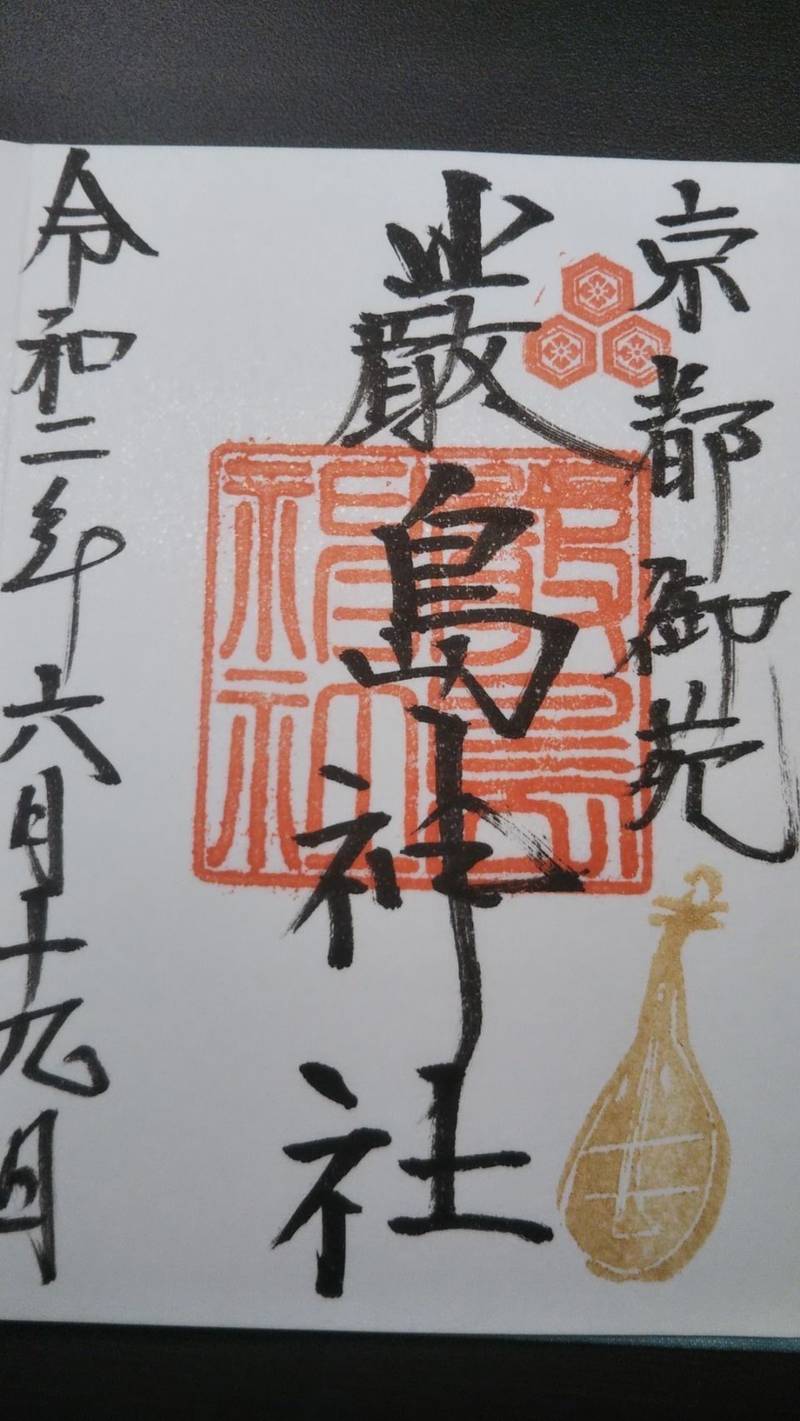 京都御苑
厳島神社
嚴島神社
令和二年六月十九日